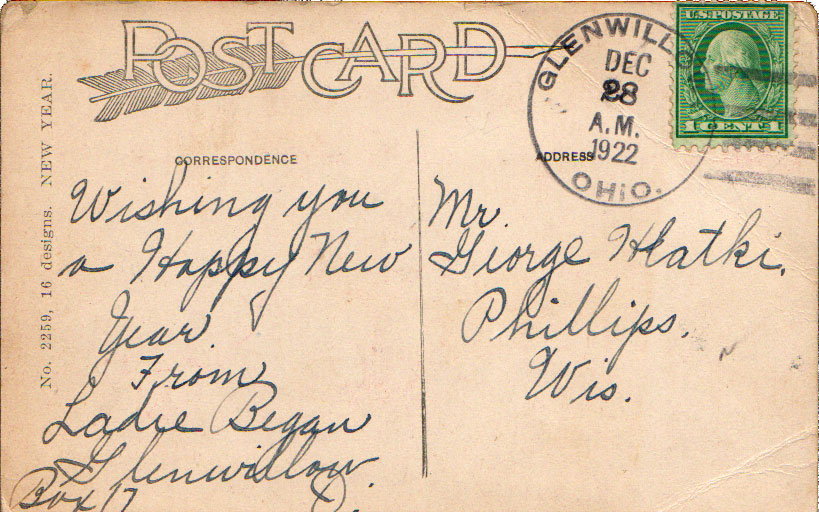 POST CARD
GLENWILLO
DEC
28
A.M.
1922
OHIO.
U.S. POSTAGE
1 CENT 1
CORRESPONDENCE
ADDRESS
No. 2259, 16 designs. NEW YEAR.
Wishing you
a Happy New
Year
From
Ladie Began
Glenwillow
Box 17 O.
Mr.
Giorge Hlatki,
Phillips,
Wis.